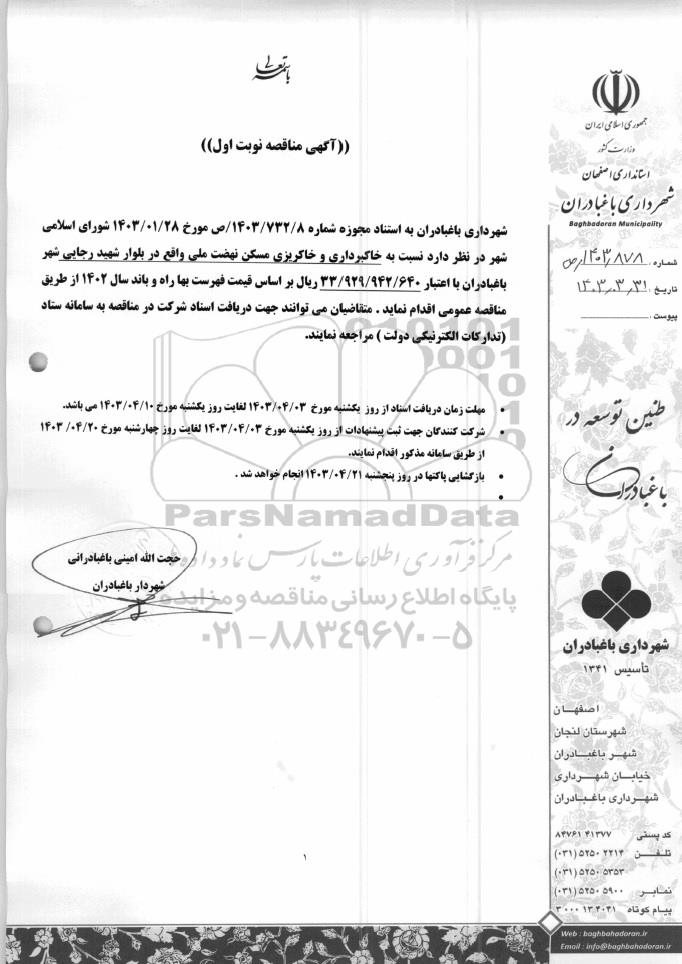 باسمه تعالی
جمهوری اسلامی ایران
وزارت کشور
استانداری اصفهان
شهرداری باغبادران
Baghbadoran Municipality
شماره : ۱۴۰۳/۸۷۸/ص
تاریخ : ۱۴۰۳/۰۳/۳۱
پیوست :
((آگهی مناقصه نوبت اول))
شهرداری باغبادران به استناد مجوزه شماره ۱۴۰۳/۷۳۲/۸/ص مورخ ۱۴۰۳/۰۱/۲۸ شورای اسلامی
شهر در نظر دارد نسبت به خاکبرداری و خاکریزی مسکن نهضت ملی واقع در بلوار شهید رجایی شهر
باغبادران با اعتبار ۳۳/۹۲۹/۹۴۲/۶۴۰ ریال بر اساس قیمت فهرست بها راه و باند سال ۱۴۰۲ از طریق
مناقصه عمومی اقدام نماید . متقاضیان می توانند جهت دریافت اسناد شرکت در مناقصه به سامانه ستاد
(تدارکات الکترنیکی دولت ) مراجعه نمایند.
• مهلت زمان دریافت اسناد از روز یکشنبه مورخ ۱۴۰۳/۰۴/۰۳ لغایت روز یکشنبه مورخ ۱۴۰۳/۰۴/۱۰ می باشد.
• شرکت کنندگان جهت ثبت پیشنهادات از روز یکشنبه مورخ ۱۴۰۳/۰۴/۰۳ لغایت روز چهارشنبه مورخ ۱۴۰۳/۰۴/۲۰
از طریق سامانه مذکور اقدام نمایند.
• بازگشایی پاکتها در روز پنجشنبه ۱۴۰۳/۰۴/۲۱ انجام خواهد شد .
•
حجت الله امینی باغبادرانی
شهردار باغبادران
ParsNamadData
مرکز فرآوری اطلاعات پارس نماد داده
پایگاه اطلاع رسانی مناقصه و مزایده
۰۲۱-۸۸۳۴۹۶۷۰-۵
طنین توسعه در
باغبادران
شهرداری باغبادران
تأسیس ۱۳۴۱
اصفهان
شهرستان لنجان
شهر باغبادران
خیابان شهرداری
شهرداری باغبادران
کد پستی ۸۴۷۶۱ ۴۱۳۷۷
تلفن ۵۲۵۰ ۲۲۱۴ (۰۳۱)
۵۲۵۰ ۵۳۵۳ (۰۳۱)
نمابر ۵۲۵۰ ۵۹۰۰ (۰۳۱)
پیام کوتاه ۳۰۰۰ ۱۳ ۴۰۴۱
Web : baghbahadoran.ir
Email : info@baghbahadoran.ir
۱